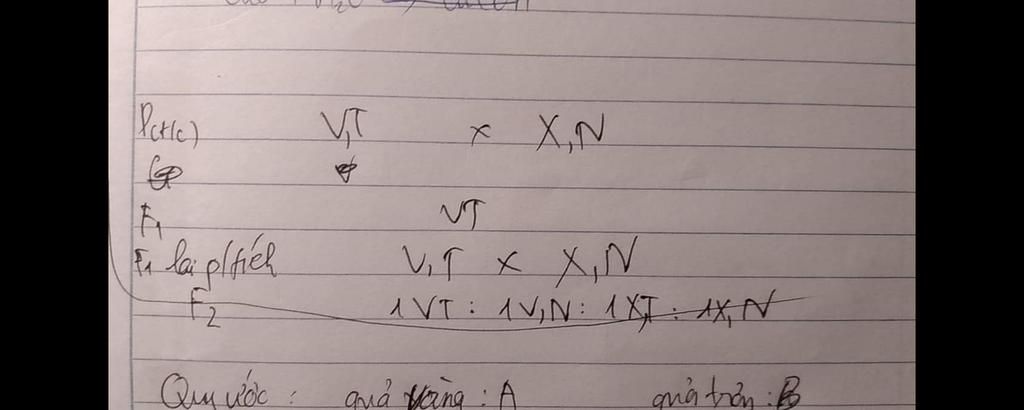 P(t/c) V,T x X,N
F1 VT
F1 lai p/tích V,T x X,N
F2 1VT : 1V,N : 1X,T : 1X,N
Quy ước : quả vàng : A quả tròn : B